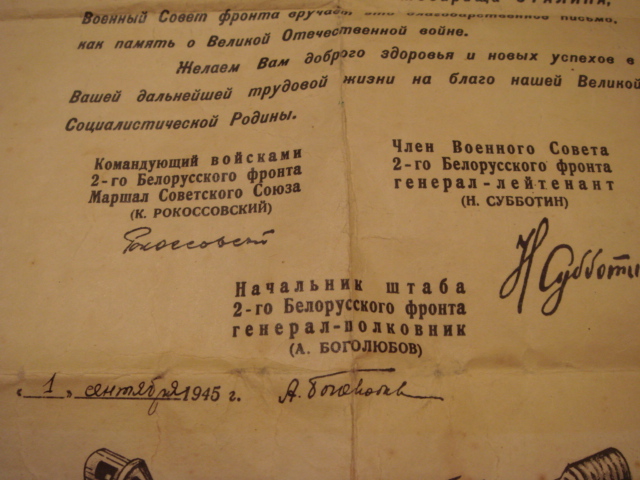 СТАЛИНА,
Военный Совет фронта вручает это благодарственное письмо,
как память о Великой Отечественной войне.
Желаем Вам доброго здоровья и новых успехов в
Вашей дальнейшей трудовой жизни на благо нашей Великой
Социалистической Родины.
Командующий войсками
2-го Белорусского фронта
Маршал Советского Союза
(К. РОКОССОВСКИЙ)
Рокоссовский
Член Военного Совета
2-го Белорусского фронта
генерал-лейтенант
(Н. СУББОТИН)
Н Субботи
Начальник штаба
2-го Белорусского фронта
генерал-полковник
(А. БОГОЛЮБОВ)
„1" сентября 1945 г.
А. Боголюбов